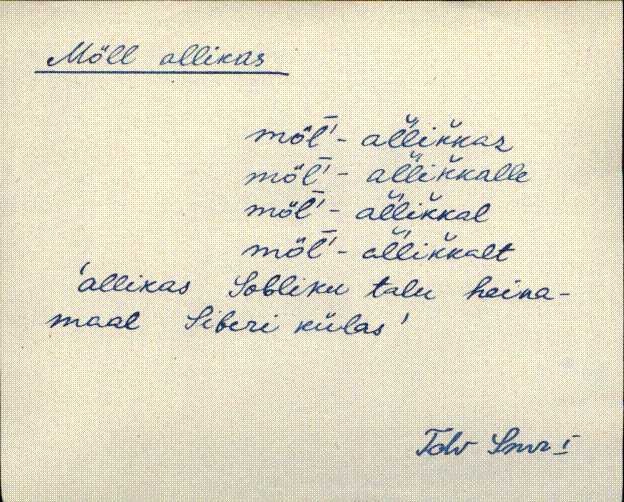 Möll allikas
möl̄'- al̆likkaz
möl̄'- al̆likkalle
möl̄'- al̆likkal
möl̄'- al̆likkalt
'allikas Sobliku talu heina-
maal Siberi külas'